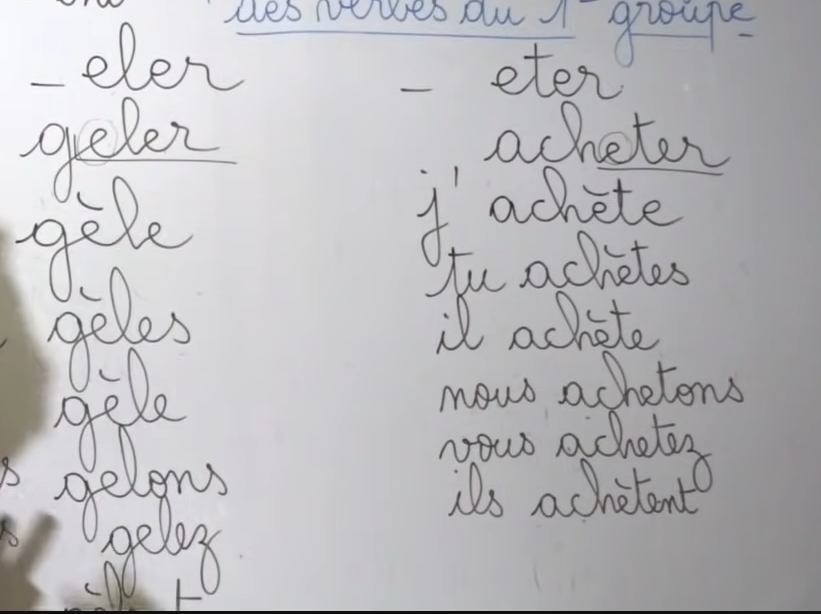 des verbes du 1er groupe
- eler
geler
gèle
gèles
gèle
gelons
gelez
- eter
acheter
j'achète
tu achètes
il achète
nous achetons
vous achetez
ils achètent